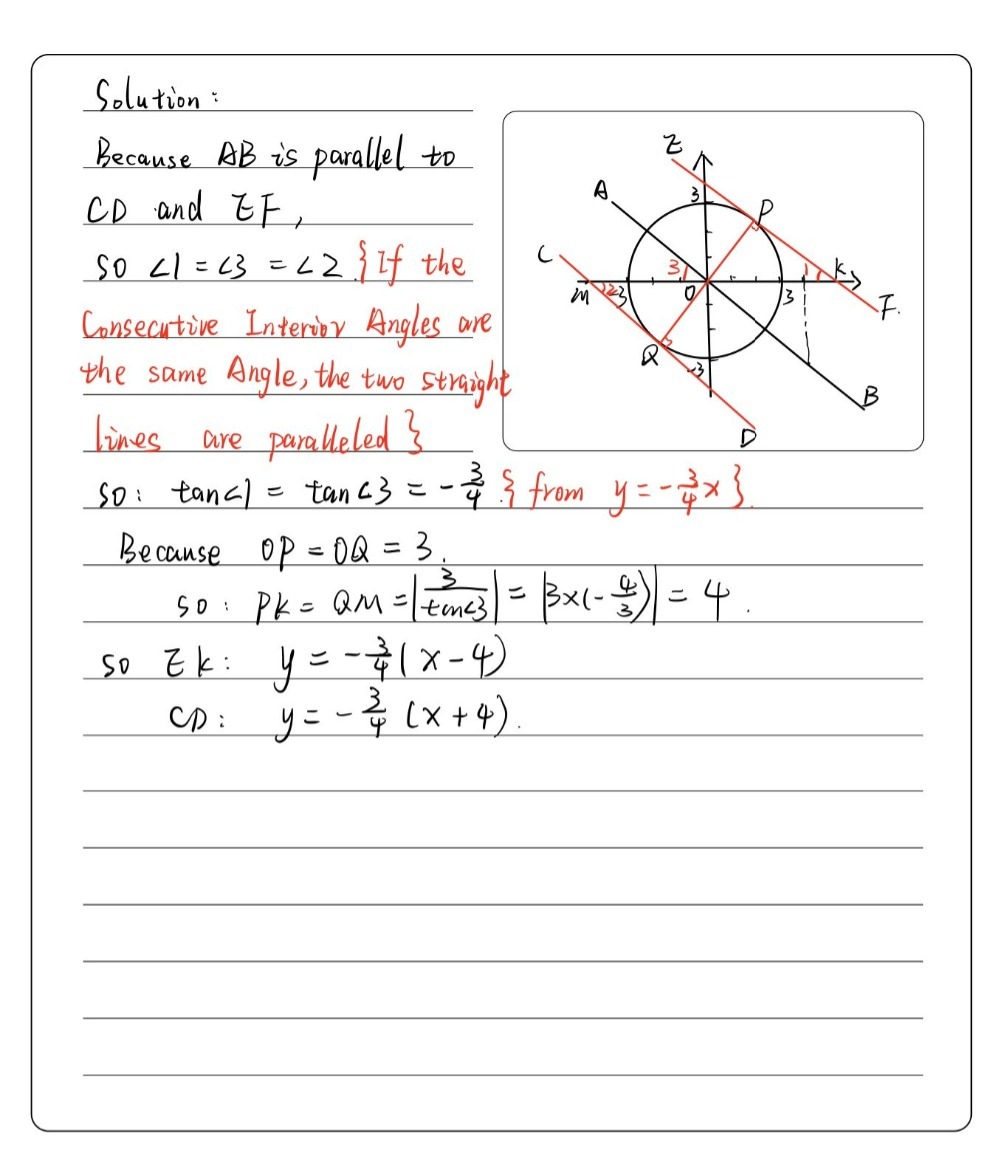 Solution:
Because AB is parallel to
CD and EF,
so ∠1 = ∠3 = ∠2 {If the
Consecutive Interior Angles are
the same Angle, the two straight
lines are paralleled}
so: tan∠1 = tan∠3 = -3/4. {from y = -3/4 x}.
Because OP = OQ = 3.
so: PK = QM = |3/tan∠3| = |3×(-4/3)| = 4.
so EK: y = -3/4 (x-4)
CD: y = -3/4 (x+4).
E
A
3
P
C
3
1
K
M
2
-3
O
3
F.
Q
-3
B
D